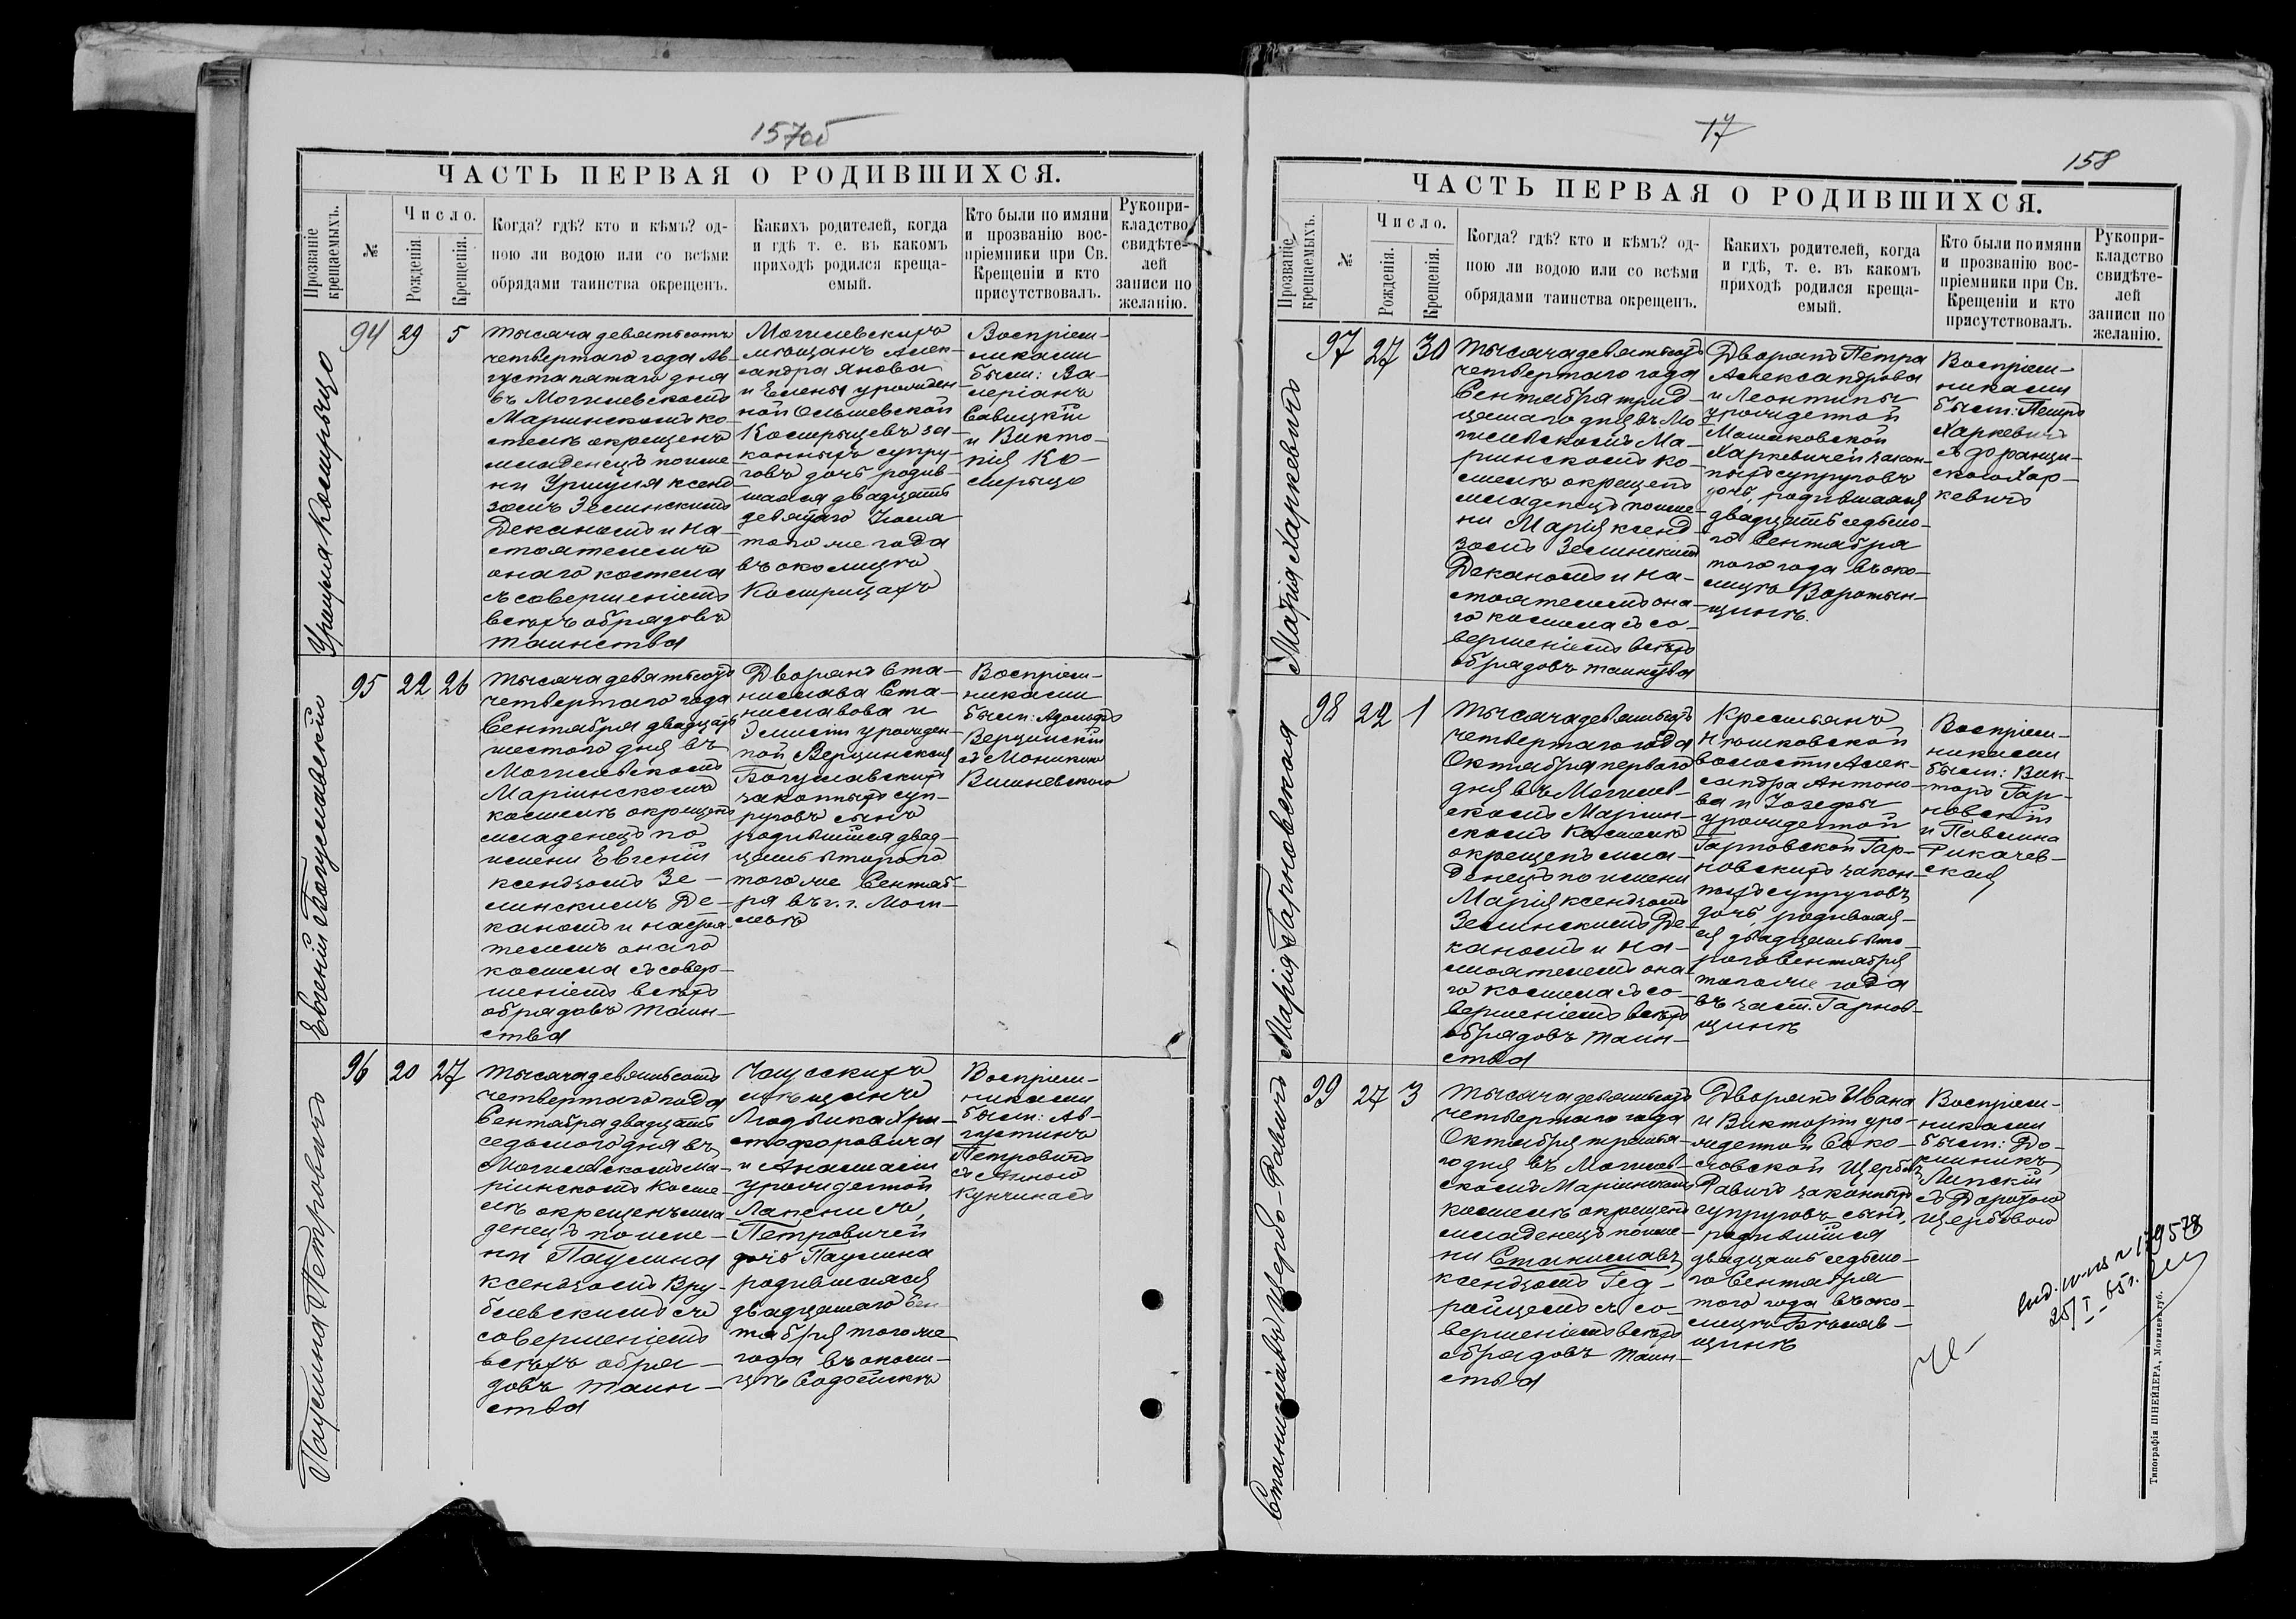 157об
ЧАСТЬ ПЕРВАЯ О РОДИВШИХСЯ.
Прозваніе крещаемыхъ.
№
Число.
Рожденія.
Крещенія.
Когда? гдѣ? кто и кѣмъ? од-
ною ли водою или со всѣми
обрядами таинства окрещенъ.
Каихъ родителей, когда
и гдѣ т. е. въ какомъ
приходѣ родился креща-
емый.
Кто были по имяни
и прозванію вос-
пріемники при Св.
Крещеніи и кто
присутствовалъ.
Рукопри-
кладство
свидѣте-
лей
записи по
желанію.
Уршуля Костырцо
94
29
5
тысяча девятьсотъ
четвертаго года Ав-
густа пятаго дня
въ Могилевскомъ
Маріинскомъ ко-
стелѣ окрещенъ
младенецъ по име-
ни Уршуля ксенд-
зомъ Зелинскимъ
Деканомъ и На-
стоятелемъ
онаго костела
съ совершеніемъ
всѣхъ обрядовъ
таинства
Могилевскихъ
мѣщанъ Алек-
сандра Янова
и Елены урожден-
ной Ольшевской
за-
конныхъ супру-
говъ дочь родив-
шаяся двадцать
девятаго Іюля
того же года
въ околицѣ
Воспріем-
никами
были: Ва-
леріанъ
Савицкій
и Викто-
рія Ко-
Евгеній Богуславскій
95
22
26
тысяча девятьсотъ
четвертаго года
Сентября двадцать
шестого дня въ
Могилевскомъ
Маріинскомъ
костелѣ окрещенъ
младенецъ по
имени Евгеній
ксендзомъ Зе-
линскимъ Де-
каномъ и настоя-
телемъ онаго
костела съ совер-
шеніемъ всѣхъ
обрядовъ таин-
ства
Дворянъ Ста-
нислава Ста-
ниславова и
Эмиліи урожден-
ной Верцинской
Богуславскихъ
законныхъ суп-
руговъ сынъ
родившійся двад-
цать второго
того же Сентяб-
ря въ г. Моги-
левѣ
Воспріем-
никами
были: Адольфъ
Верцинскій
съ Моникою
Вишневскою
Паулина Петровичъ
96
20
27
тысяча девятьсотъ
четвертаго года
Сентября двадцать
седьмого дня въ
Могилевскомъ Ма-
ріинскомъ косте-
лѣ окрещенъ мла-
денецъ по име-
ни Паулина
ксендзомъ Вру-
блевскимъ съ
совершеніемъ
всѣхъ обря-
довъ таин-
ства
Чаусскихъ
мѣщанъ
Людвика Хри-
стофоровича
и Анастасіи
урожденной
Петровичей
дочь Паулина
родившаяся
двадцатаго Сен-
тября того же
года въ околи-
цѣ
Воспріем-
никами
были: Ав-
густинъ
Петровичъ
съ Анною
17
158
ЧАСТЬ ПЕРВАЯ О РОДИВШИХСЯ.
Прозваніе крещаемыхъ.
№
Число.
Рожденія.
Крещенія.
Когда? гдѣ? кто и кѣмъ? од-
ною ли водою или со всѣми
обрядами таинства окрещенъ.
Каихъ родителей, когда
и гдѣ, т. е. въ какомъ
приходѣ родился креща-
емый.
Кто были по имяни
и прозванію вос-
пріемники при Св.
Крещеніи и кто
присутствовалъ.
Рукопри-
кладство
свидѣте-
лей
записи по
желанію.
Марія Харкевичъ
97
27
30
Тысяча девятьсотъ
четвертаго года
Сентября трид-
цатаго дня въ Мо-
гилевскомъ Ма-
ріинскомъ ко-
стелѣ окрещенъ
младенецъ по име-
ни Марія ксенд-
зомъ Зелинскимъ
Деканомъ и На-
стоятелемъ она-
го костела съ со-
вершеніемъ всѣхъ
обрядовъ таинства
Дворянъ Петра
Александрова
и Леонтины
урожденной
Машковской
Харкевичей закон-
ныхъ супруговъ
дочь, родившаяся
двадцать седьмо-
го Сентября
того года въ око-
лицѣ Воротын-
щинѣ.
Воспріем-
никами
были: Петръ
Харкевичъ
съ
Хар-
кевичъ
Марія Гарновская
98
22
1
Тысяча девятьсотъ
четвертаго года
Октября перваго
дня въ Могилев-
скомъ Маріин-
скомъ Костелѣ
окрещенъ мла-
денецъ по имени
Марія ксендзомъ
Зелинскимъ Де-
каномъ и На-
стоятелемъ она-
го костела съ со-
вершеніемъ всѣхъ
обрядовъ таин-
ства
Крестьянъ
волости Алек-
сандра Антоно-
ва и Іозефы
урожденной
Гарновской Гар-
новскихъ закон-
ныхъ супруговъ
дочь, родившая-
ся двадцать вто-
рого Сентября
того же года
въ заст. Гарнов-
щинѣ
Воспріем-
никами
были: Вик-
торъ Гар-
новскій
и Павлина
Рикачев-
ская
Станиславъ Щербо-Равичъ
99
27
3
Тысяча девятьсотъ
четвертаго года
Октября третья-
го дня въ Могилев-
скомъ Маріинскомъ
костелѣ окрещенъ
младенецъ по име-
ни Станиславъ
ксендзомъ Гед-
ройцемъ съ со-
вершеніемъ всѣхъ
обрядовъ таин-
ства
Дворянъ Ивана
и Викторіи уро-
жденной Соко-
ловской Щерба
Равичъ законныхъ
супруговъ сынъ,
родившійся
двадцать седьмо-
го Сентября
того года въ око-
лицѣ
Воспріем-
никами
были: До-
миникъ
Липскій
съ Доротою
Щербовою
25/I-65г.
Типографія ШНЕЙДЕРА, Могилевъ губ.